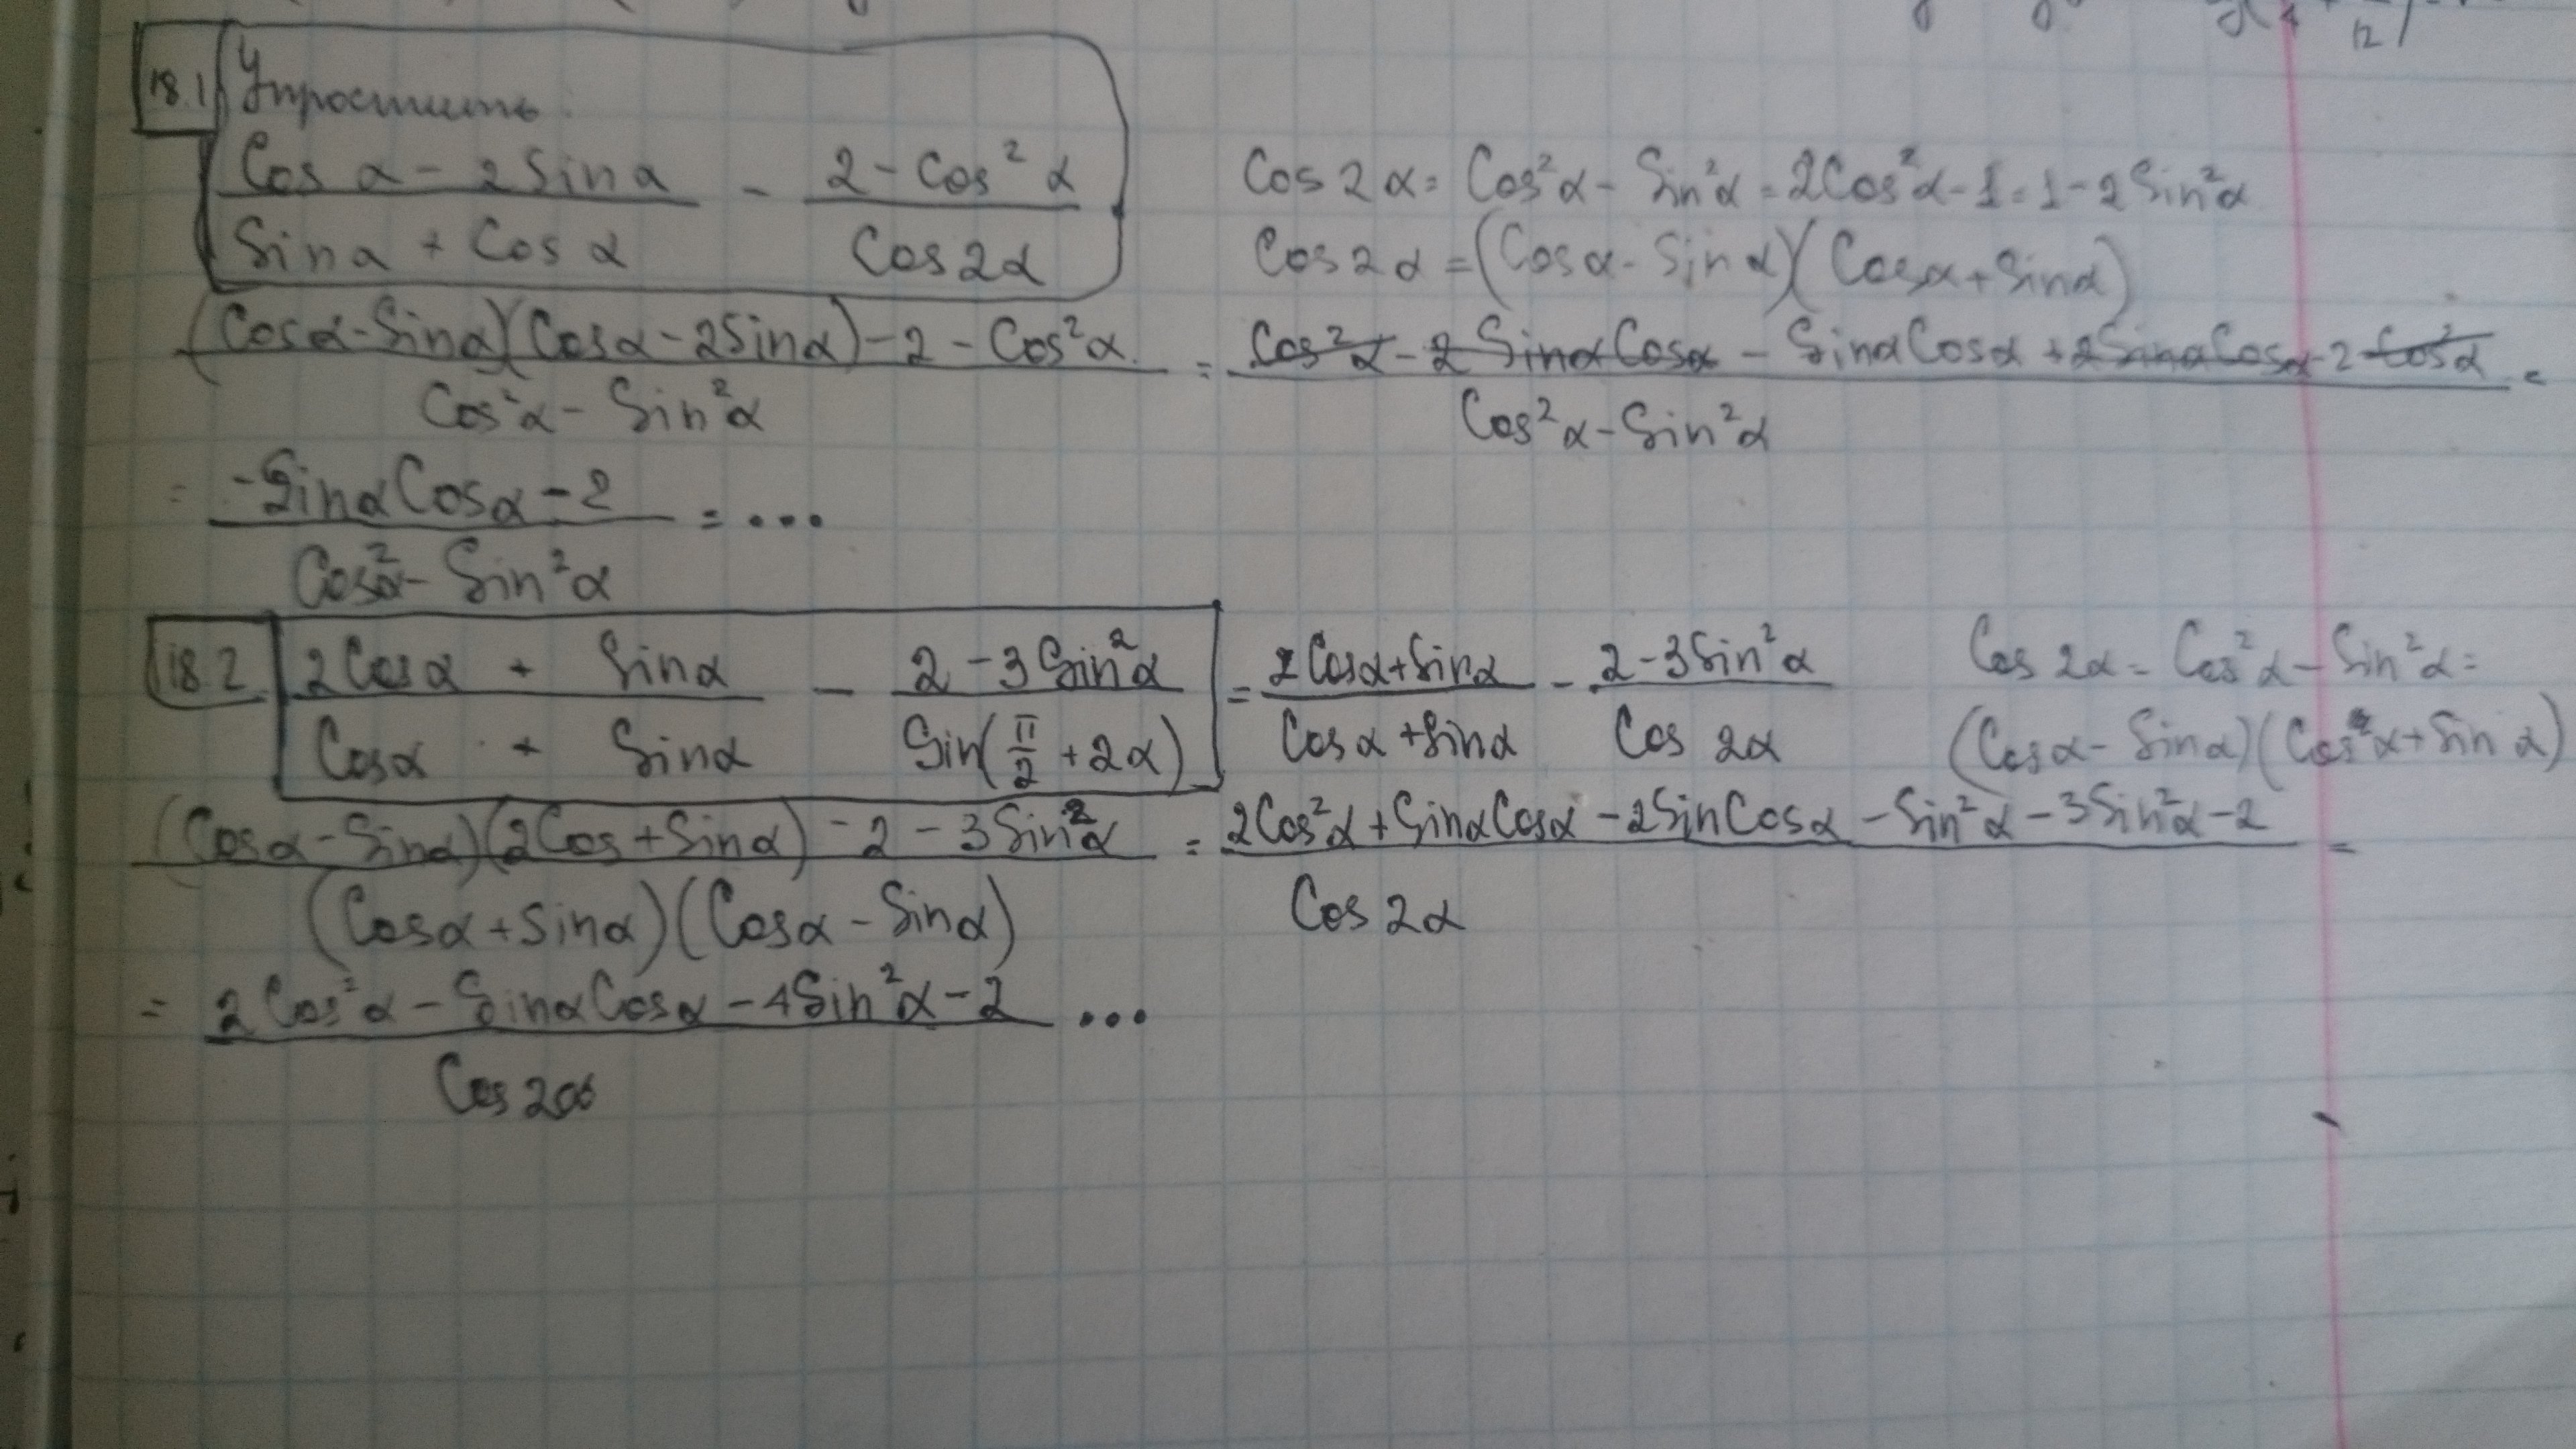 18.1 Упростить:
Cos α - 2 Sin α / Sin α + Cos α - 2 - Cos² α / Cos 2α
Cos 2α = Cos²α - Sin²α = 2Cos²α - 1 = 1 - 2 Sin²α
Cos 2α = (Cos α - Sin α)(Cos α + Sin α)
(Cos α - Sin α)(Cos α - 2Sin α) - 2 - Cos²α / Cos²α - Sin²α = Cos²α - 2 Sin α Cos α - Sin α Cos α + 2Sin α Cos α - 2 - Cos²α / Cos²α - Sin²α =
= -Sin α Cos α - 2 / Cos²α - Sin²α = ...
18.2 2Cos α + Sin α / Cos α + Sin α - 2 - 3 Sin²α / Sin(π/2 + 2α) = 2Cos α + Sin α / Cos α + Sin α - 2 - 3Sin²α / Cos 2α
Cos 2α = Cos²α - Sin²α =
(Cos α - Sin α)(Cos α + Sin α)
(Cos α - Sin α)(2Cos + Sin α) - 2 - 3Sin²α / (Cos α + Sin α)(Cos α - Sin α) = 2Cos²α + Sin α Cos α - 2Sin Cos α - Sin²α - 3Sin²α - 2 / Cos 2α =
= 2Cos²α - Sin α Cos α - 4Sin²α - 2 / Cos 2α ...